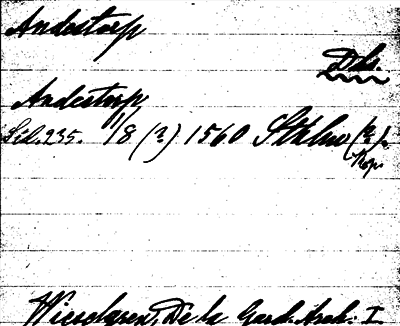 Anderstorp
Dds.
Anderstorp
Sid. 235. 11/8 (?) 1560 Sthlm (?).
Kop.
Wieselgren, De la Gard. Arch. I